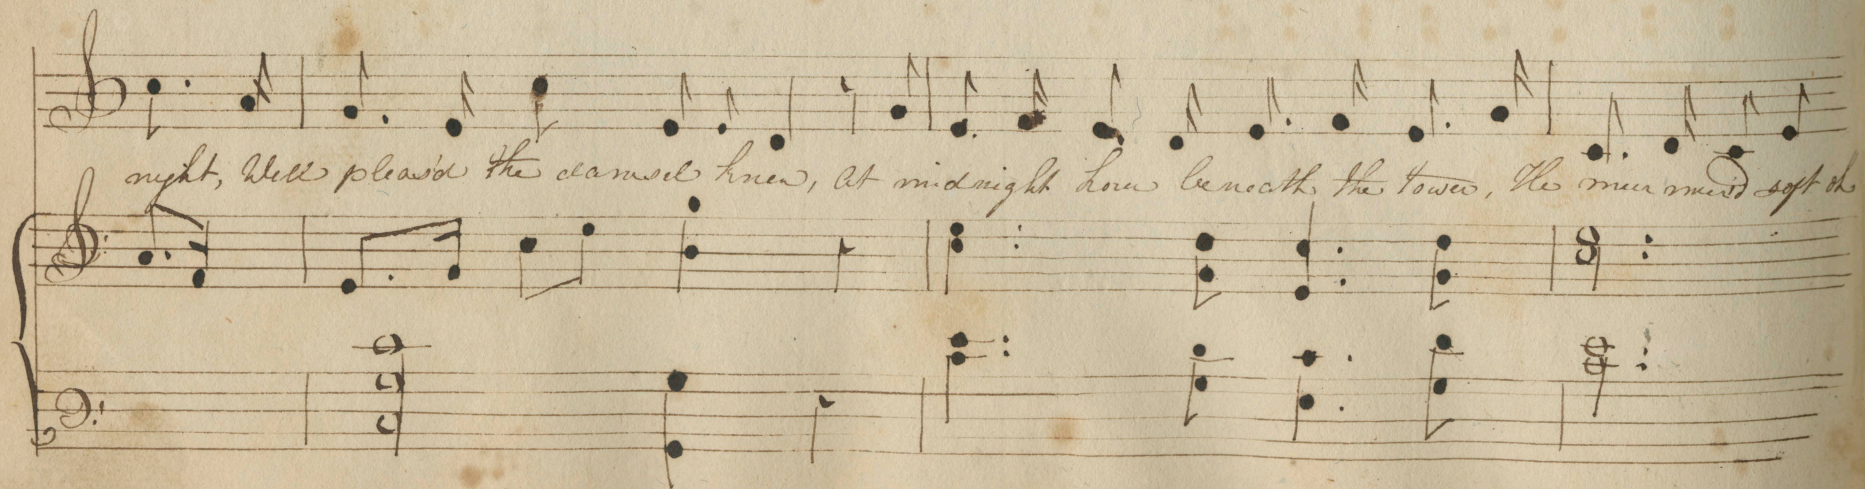 night, Well pleas'd the damsel knew, At midnight hour beneath the tower, He murmur'd soft oh